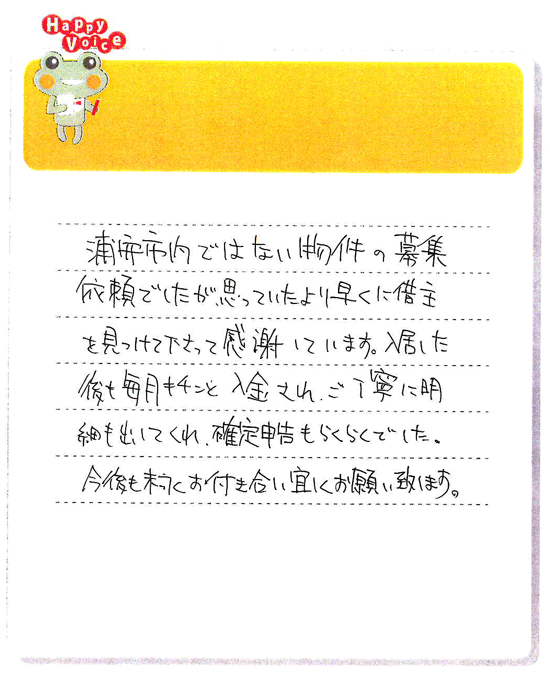 Happy
Voice
浦安市内ではない物件の募集
依頼でしたが思っていたより早くに借主
を見つけて下さって感謝しています。入居した
後も毎月キチンと入金され、ご丁寧に明
細も出してくれ、確定申告もらくらくでした。
今後も末永くお付き合い宜しくお願い致します。